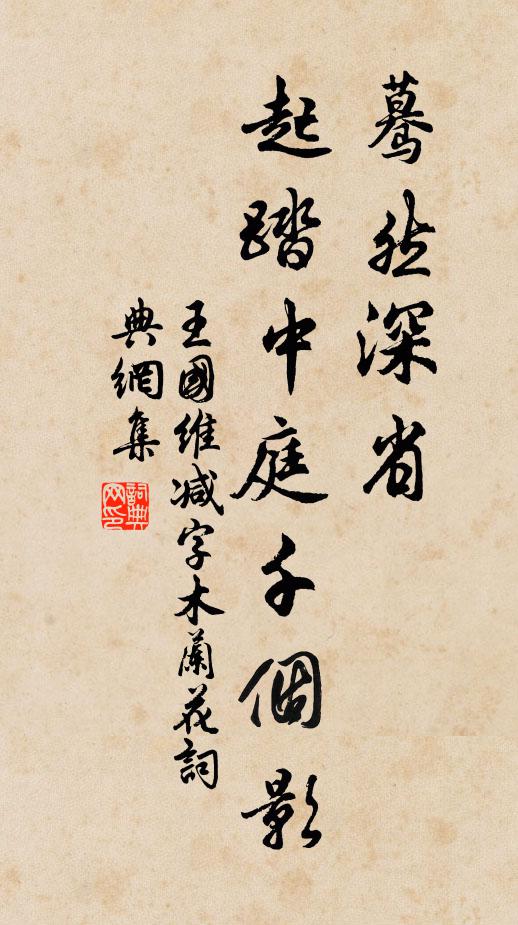 驀然深省
起踏中庭千個影
王國維减字木蘭花詞
典網集
詞典
网印